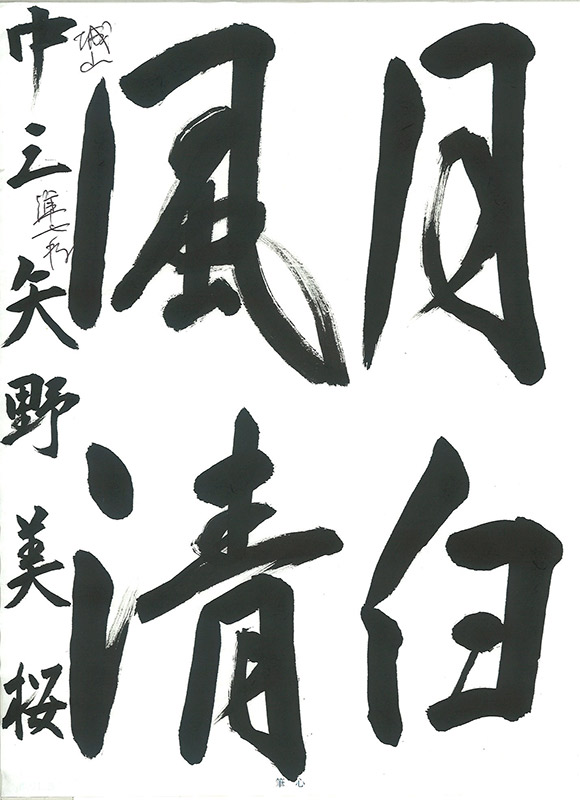 月白
風清
城山
中三 矢野美桜
筆心